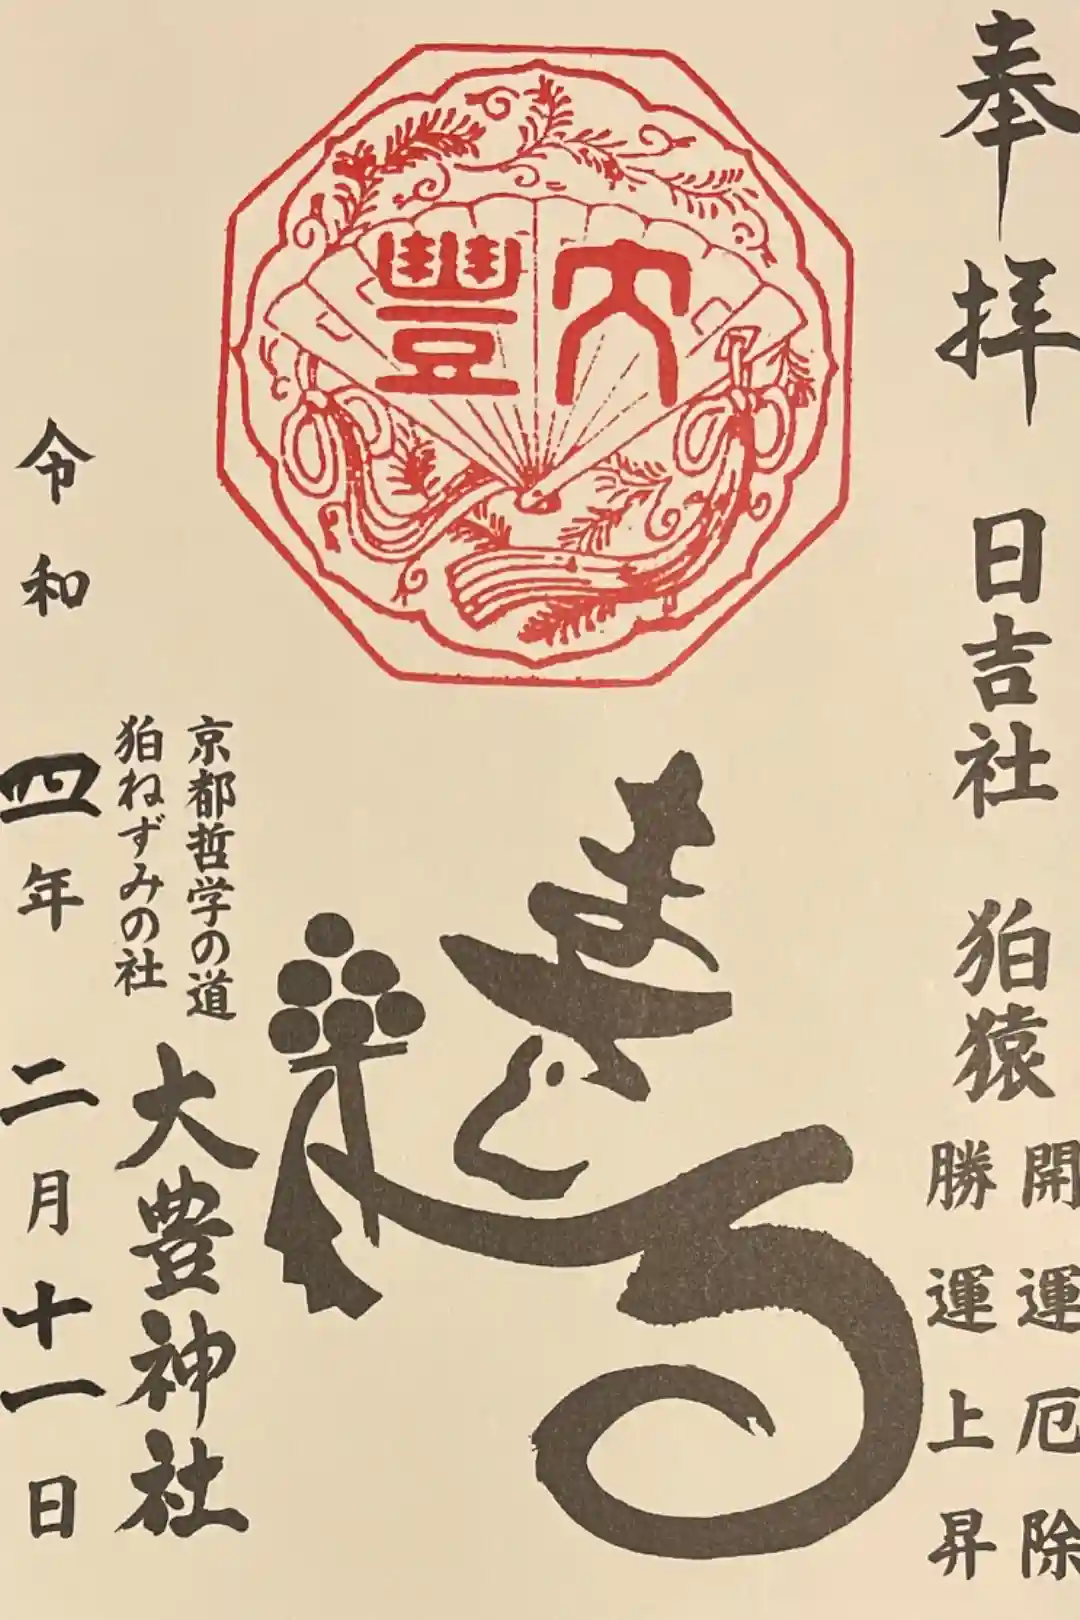 奉拝
日吉社
狛猿
開運厄除
勝運上昇
大豊
京都哲学の道
狛ねずみの社
大豊神社
令和四年二月十一日